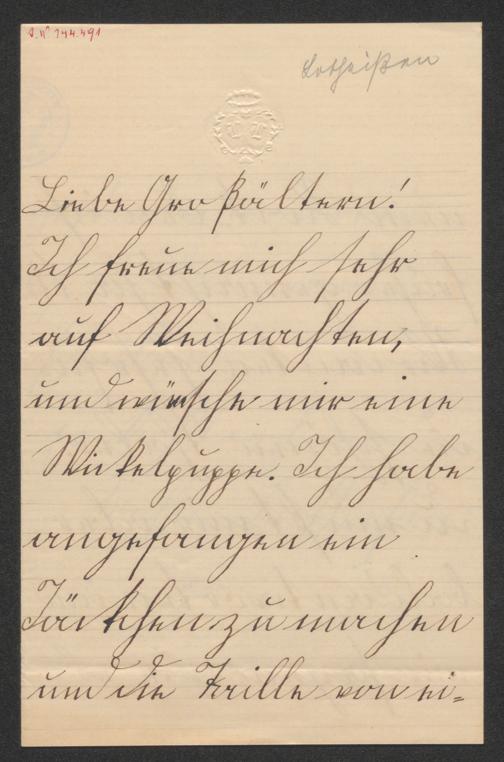 I.N 144.491
Lotheißen
Liebe Großältern!
Ich freue mich sehr
auf Weihnachten,
und wünsche mir eine
Wickelpuppe. Ich habe
angefangen ein
Jäckchen zu machen
und die Taille von ei=